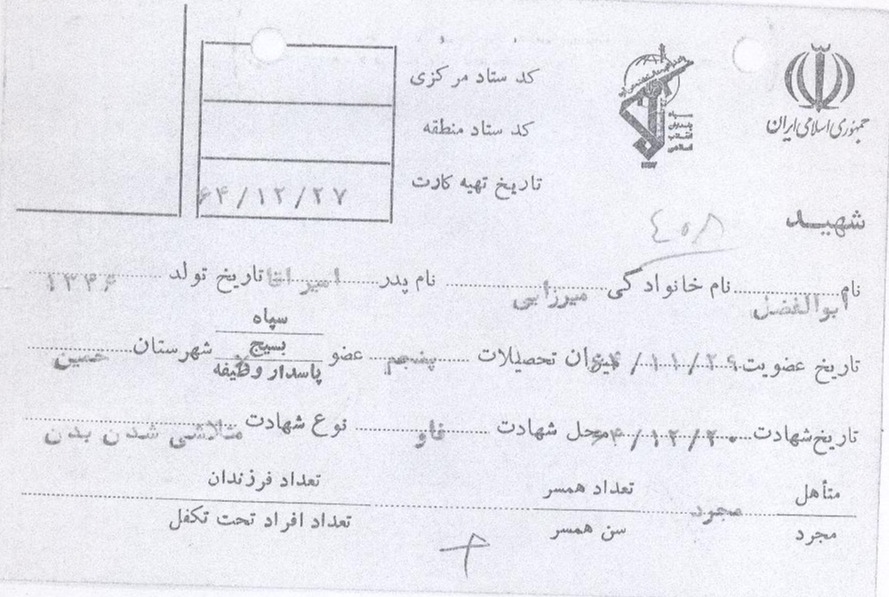 جمهوری اسلامی ایران
سپاه پاسداران انقلاب اسلامی
کد ستاد مرکزی
کد ستاد منطقه
تاریخ تهیه کارت ۶۴/۱۲/۲۷
شهید
۴۵۸
نام ابوالفضل نام خانوادگی میرزایی نام پدر امیر اقا تاریخ تولد ۱۳۳۶
تاریخ عضویت ۶۴/۱۱/۲۹ میزان تحصیلات پنجم عضو سپاه بسیج پاسدار وظیفه شهرستان خمین
تاریخ شهادت ۶۴/۱۲/۲۰ محل شهادت فاو نوع شهادت متلاشی شدن بدن
متأهل مجرد مجرد تعداد همسر سن همسر تعداد فرزندان تعداد افراد تحت تکفل